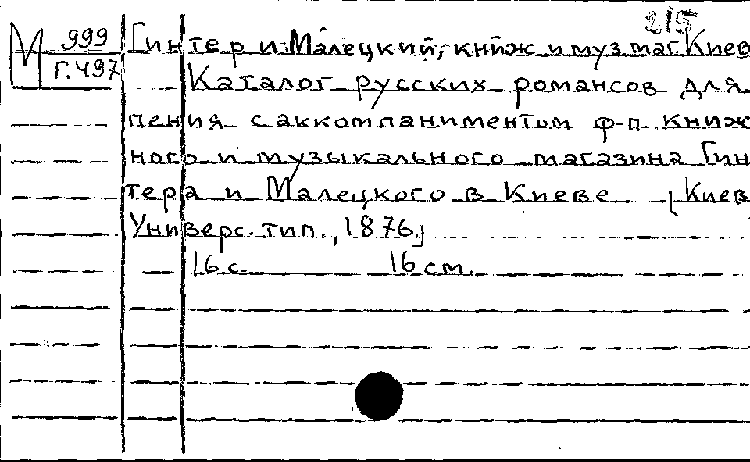 215
М 999 Гинтер и Малецкий, книж. и муз. маг. Киев
Г.497 Каталог русских романсов для
пения с аккомпаниментом ф-п. книж
ного и музыкального магазина Гин
тера и Малецкого в Киеве [Киев
Универс. тип., 1876]
16 с. 16 см.